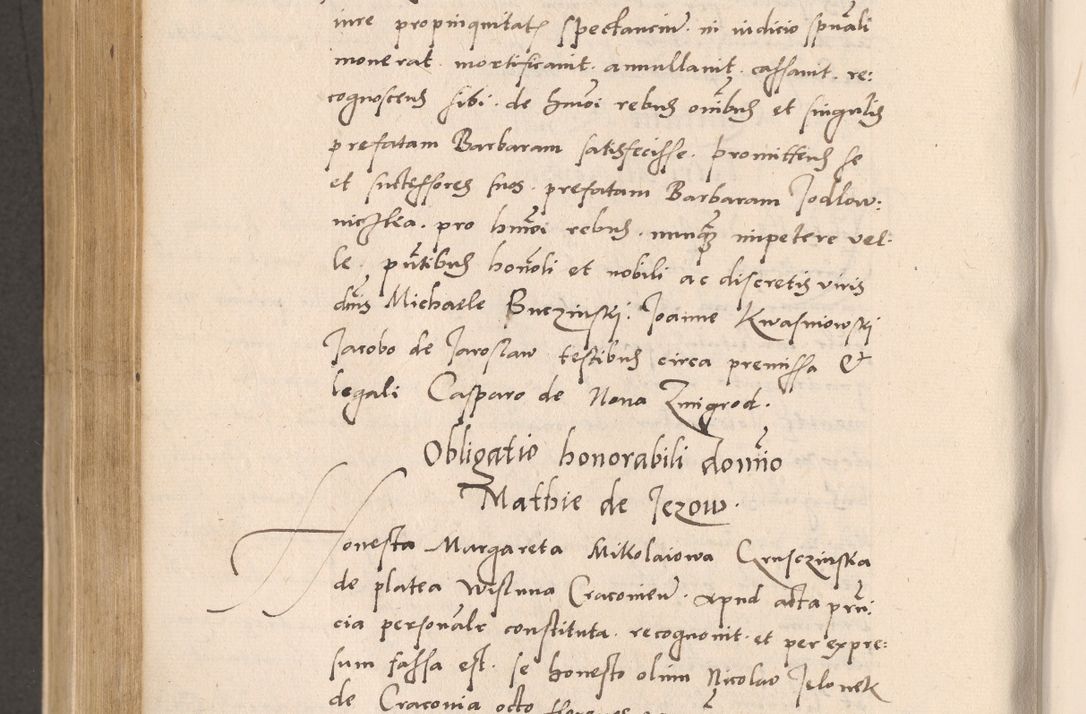 iure propinquitatis spectancium in iudicio spuali
monerat mortificauit annullauit cassauit re:
cognoscens sibi de hmoi rebus omibus et singulis
prefatam Barbaram satisfecisse promittens se
et successores suos prefatam Barbaram Jodlow:
niczkea pro hmoi rebus nunquam impetere vel:
le pntibus honoli et nobili ac discretis viris
dnis Michaele Buczinskj Joanne Kwasniowskj
Jacobo de Jaroslaw testibus circa premissa &
legali Casparo de Noua Zmigrod.
Obligatio honorabili domino
Mathie de Jezow.
Honesta Margareta Mikolaiowa Cruschinska
de platea Wislnna Cracouien apud acta prnn
cia personalr constituta recognouit et per expre:
sum fassa est se honesto olim Nicolao Jelonek
de Cracouia octo